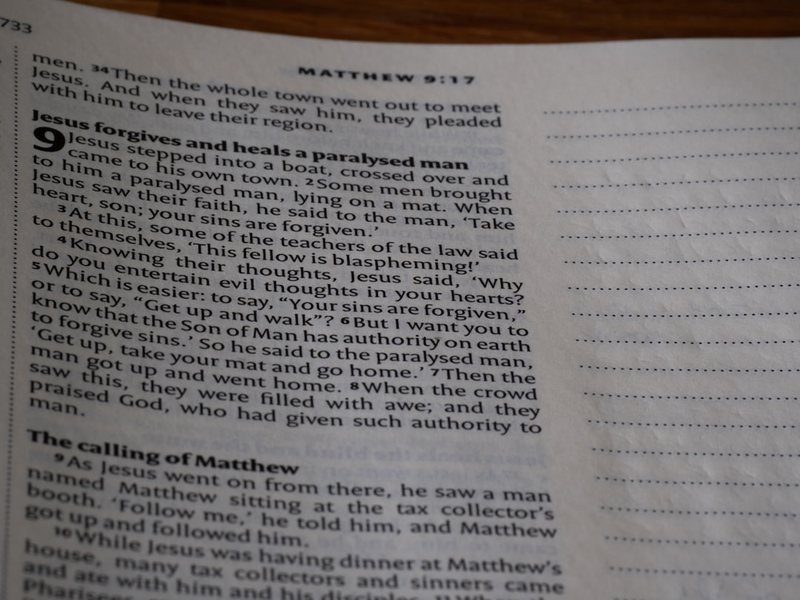 733
MATTHEW 9:17
men. 34Then the whole town went out to meet
Jesus. And when they saw him, they pleaded
with him to leave their region.
Jesus forgives and heals a paralysed man
9 Jesus stepped into a boat, crossed over and
came to his own town. 2Some men brought
to him a paralysed man, lying on a mat. When
Jesus saw their faith, he said to the man, ‘Take
heart, son; your sins are forgiven.’
3At this, some of the teachers of the law said
to themselves, ‘This fellow is blaspheming!’
4Knowing their thoughts, Jesus said, ‘Why
do you entertain evil thoughts in your hearts?
5Which is easier: to say, “Your sins are forgiven,”
or to say, “Get up and walk”? 6But I want you to
know that the Son of Man has authority on earth
to forgive sins.’ So he said to the paralysed man,
‘Get up, take your mat and go home.’ 7Then the
man got up and went home. 8When the crowd
saw this, they were filled with awe; and they
praised God, who had given such authority to
man.
The calling of Matthew
9As Jesus went on from there, he saw a man
named Matthew sitting at the tax collector’s
booth. ‘Follow me,’ he told him, and Matthew
got up and followed him.
10While Jesus was having dinner at Matthew’s
house, many tax collectors and sinners came
and ate with him and his disciples.